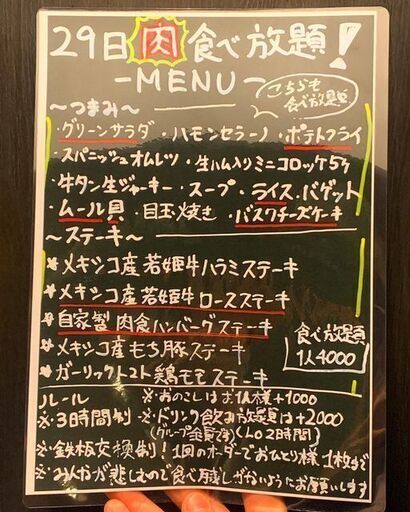 29日 肉 食べ放題!
-MENU-
こちらも
食べ放題
〜つまみ〜
・グリーンサラダ ・ハモンセラーノ ・ポテトフライ
・スパニッシュオムレツ ・生ハム入りミニコロッケ5ヶ
・牛タン生ジャーキー ・スープ ・ライス ・バゲット
・ムール貝 ・目玉焼き ・バスクチーズケーキ
〜ステーキ〜
★メキシコ産若姫牛ハラミステーキ
★メキシコ産若姫牛ロースステーキ
★自家製肉食ハンバーグステーキ
★メキシコ産もち豚ステーキ
★ガーリックトマト鶏モモステーキ
食べ放題
1人4000
ルール ※おのこしはお1人様+1000
※3時間制 ※ドリンク飲み放題は+2000
(グループ全員です)(L.O 2時間)
※鉄板交換制!1回のオーダーでおひとり様1枚まで
※みんなが悲しむので食べ残しがないようにお願いします